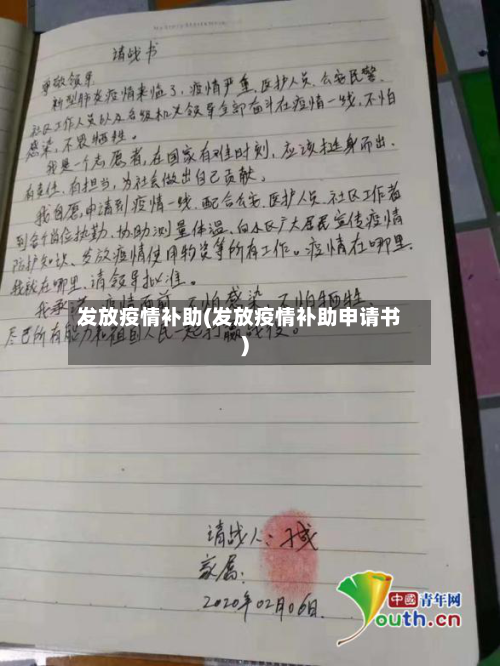 请战书
尊敬领导
新型肺炎疫情来临了，疫情严重，医护人员、公安民警、
社区工作人员以及各级机关领导全部奋斗在疫情一线，不怕
感染，不畏牺牲。
我是一个志愿者，在国家有难时刻，应该挺身而出，
有责任、有担当，为社会做出自己贡献。
我自愿申请到疫情一线，配合公安、医护人员、社区工作者
到各个岗位执勤、协助测量体温、向小区广大居民宣传疫情
防护知识、发放疫情使用物资等所有工作。疫情在哪里，
我就在哪里，请领导批准。
我承诺，疫情面前，不怕感染，不怕牺牲，
发放疫情补助(发放疫情补助申请书
)
尽己所有能力和祖国人民一起打赢战役。
请战人：
家属：
2020年02月06日.
中國青年网
Youth.cn